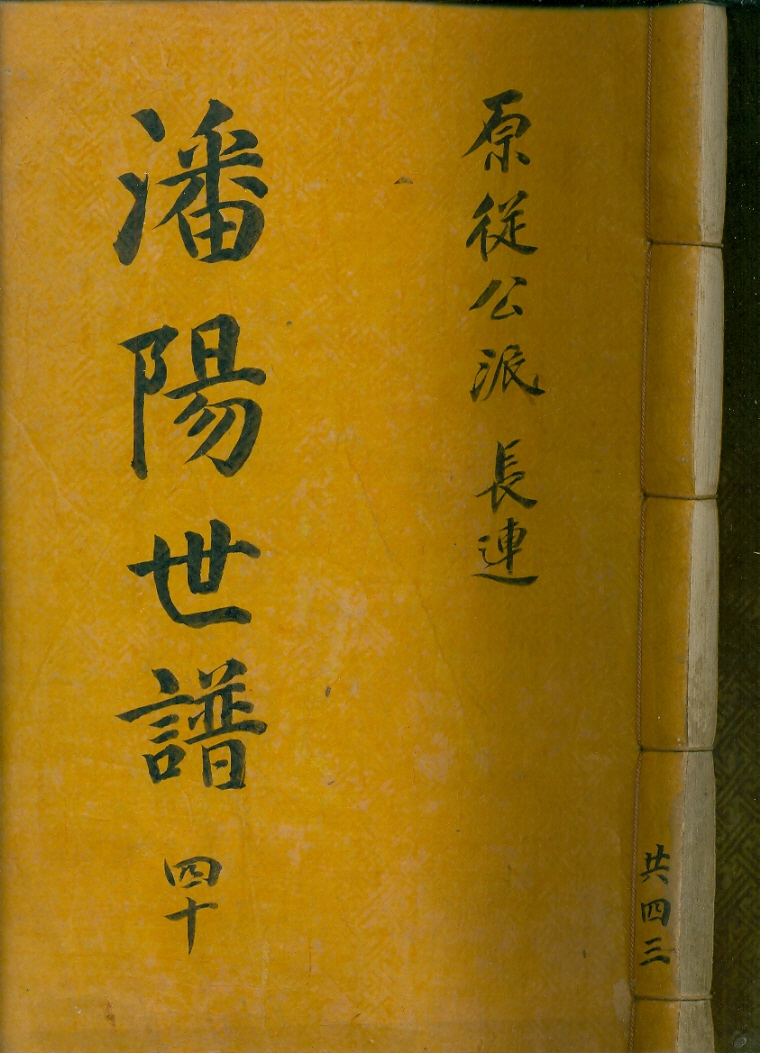 共四三
原從公派 長連
潘陽世譜 四十